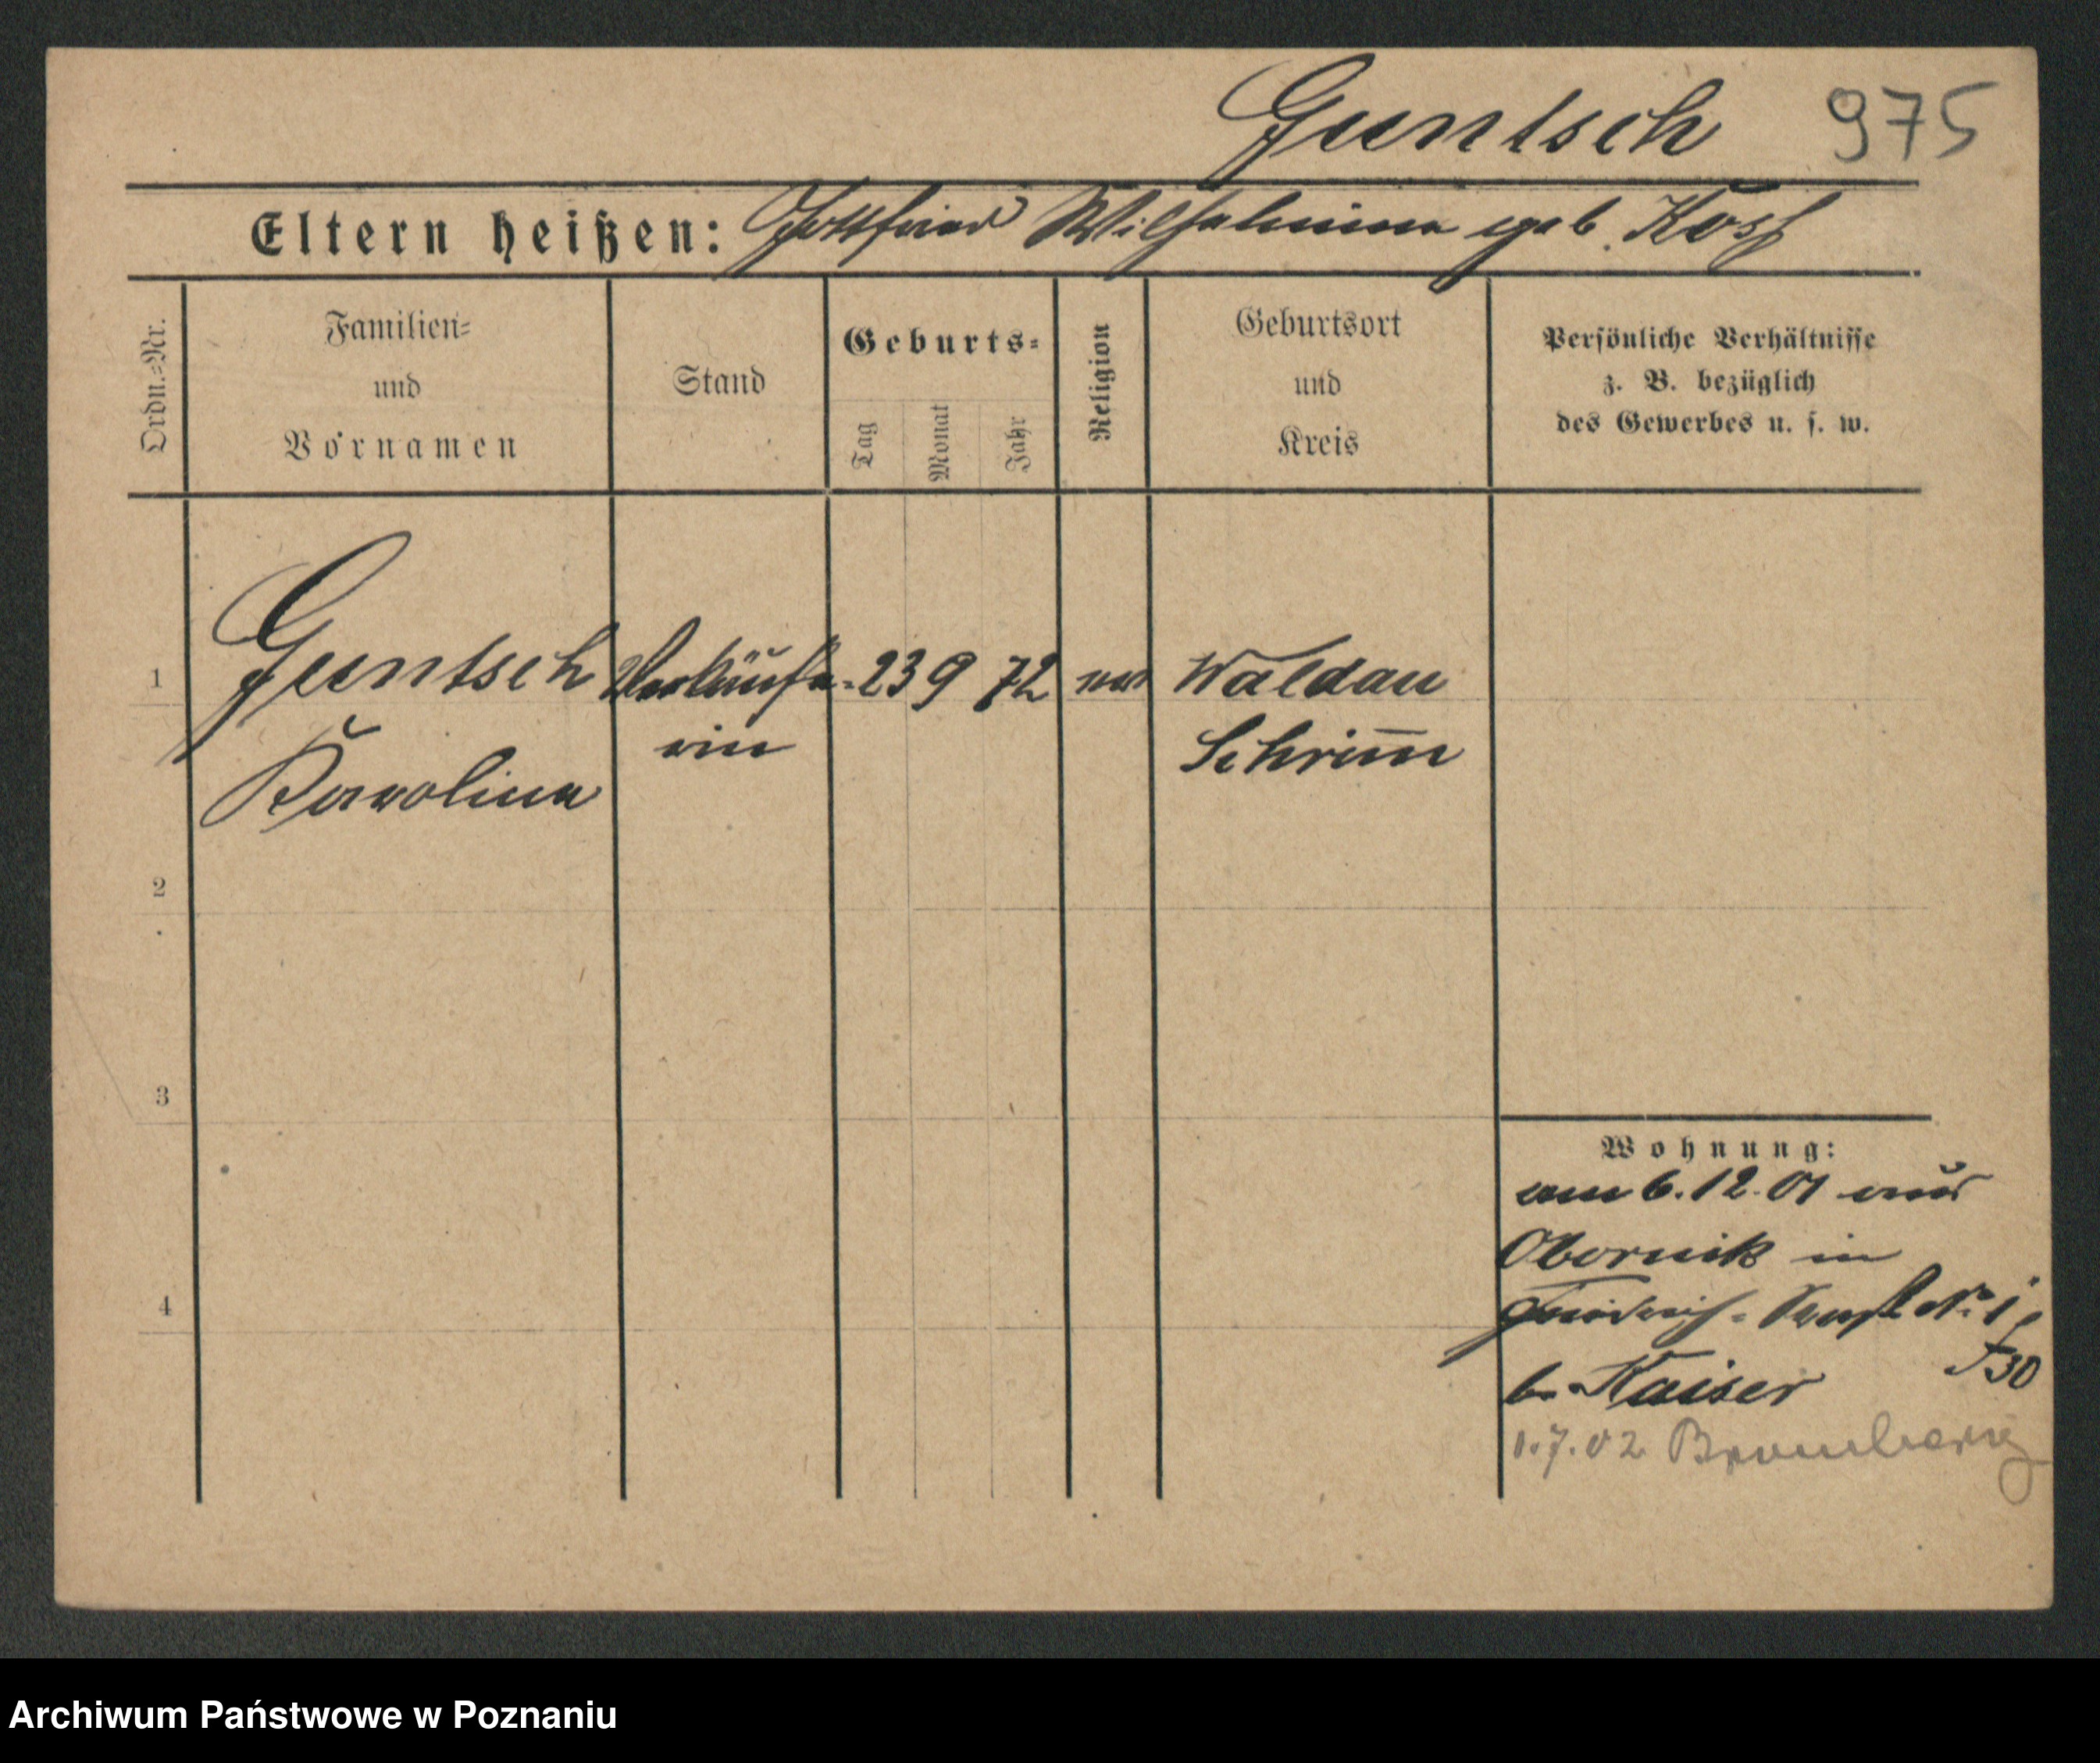 Guntsch 975
Eltern heißen: Gottfried Wilhelmine geb.
Ordn.-Nr.
Familien-
und
Vornamen
Stand
Geburts-
Tag
Monat
Jahr
Religion
Geburtsort
und
Kreis
Persönliche Verhältnisse
z. B. bezüglich
des Gewerbes u. s. w.
1 Guntsch Verkäufe- 23 9 72 Waldau
rin Schrim̄
Karolina
2
3
4
Wohnung:
am 6. 12. 01 aus
Obornik in
b. Kaiser
1.7.02 Bromberg
Archiwum Państwowe w Poznaniu